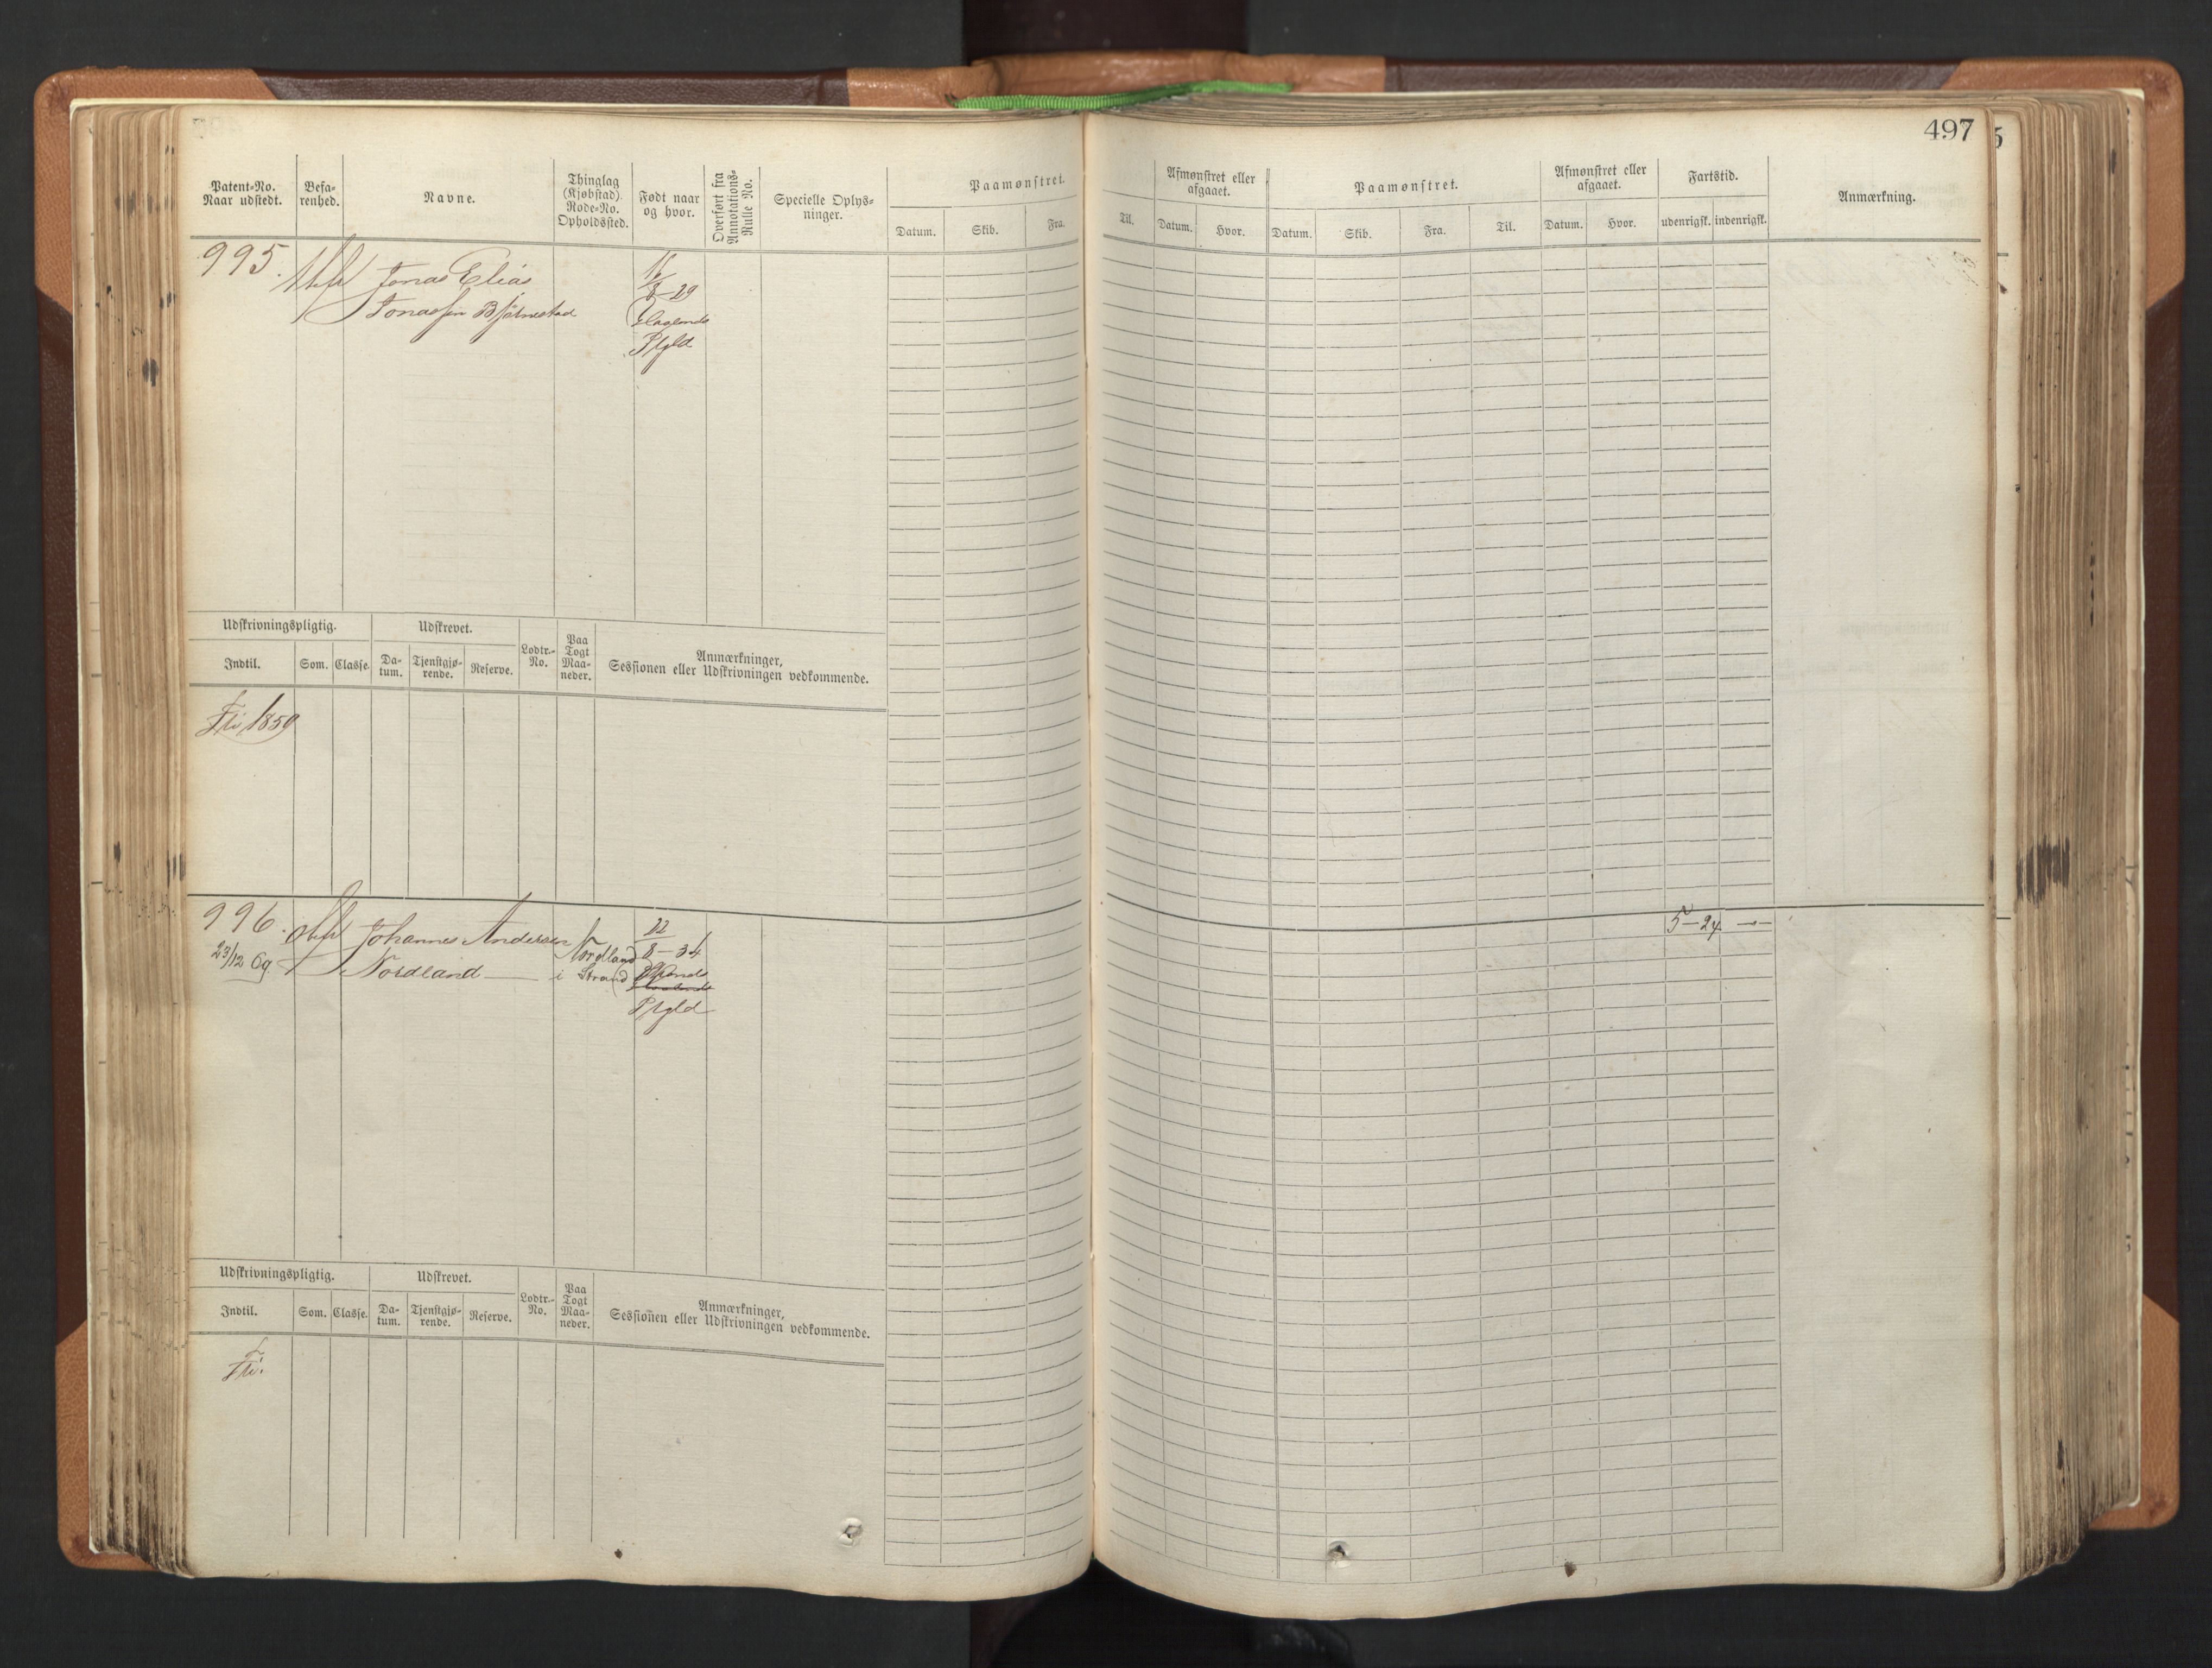 497
Patent-No. Naar udstedt.
Befa-renhed.
Navne.
Thinglag (Kjøbstad). Rode-No. Opholdssted.
Født naar og hvor.
Overført fra Annotations-Rulle No.
Specielle Oplys-ninger.
Paamønstret.
Datum. Skib. Fra. Til.
Afmønstret eller afgaaet.
Datum. Hvor.
Paamønstret.
Datum. Skib. Fra. Til.
Afmønstret eller afgaaet.
Datum. Hvor.
Fartstid.
udenrigsk. indenrigsk.
Anmærkning.
995.
Jonas Elias
Jonassen Bjørnestad
8-29
Pgld
Udskrivningspligtig. Udskrevet.
Lodtr.-No.
Paa Togt Maa-neder.
Anmærkninger,
Sessionen eller Udskrivningen vedkommende.
Indtil. Som. Classe. Da-tum. Tjenstgjø-rende. Reserve.
Fri 1859
996.
23/12 69
Johannes Andersen
Nordland
Nordland
i Strand
22
8-34
Pgld
5-24 —
Udskrivningspligtig. Udskrevet.
Lodtr.-No.
Paa Togt Maa-neder.
Anmærkninger,
Sessionen eller Udskrivningen vedkommende.
Indtil. Som. Classe. Da-tum. Tjenstgjø-rende. Reserve.
Fri.